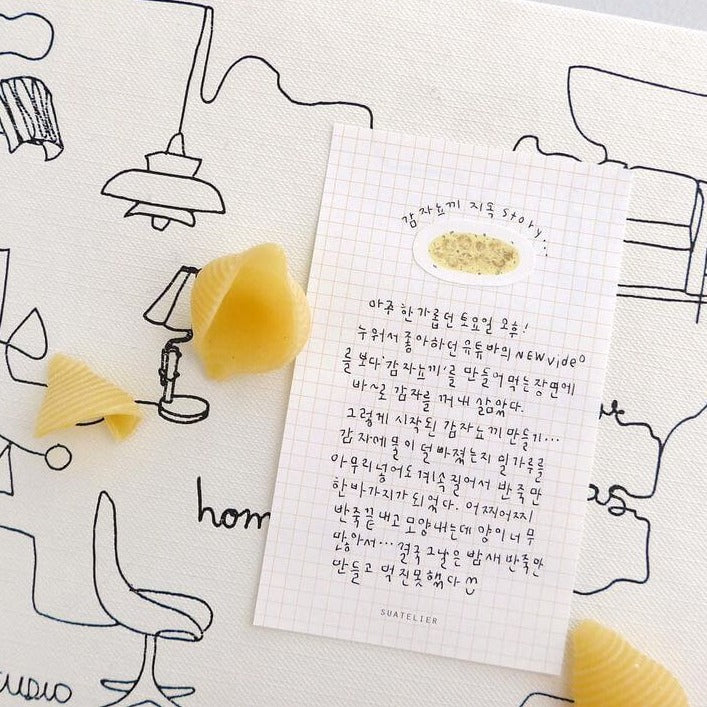 감자뇨끼 지옥 story...
아주 한가롭던 토요일 오후!
누워서 좋아하던 유튜바의 NEW video
를 보다 '감자뇨끼'를 만들어 먹는 장면에
바~로 감자를 꺼내 삶았다.
그렇게 시작된 감자뇨끼 만들기...
감자에 물이 덜 빠졌는지 밀가루를
아무리 넣어도 계속 질어서 반죽만
한바가지가 되었다. 어찌어찌
반죽 끝내고 모양내는데 양이 너무
많아서... 결국 그날은 밤새 반죽만
만들고 먹진 못했다
SUATELIER
hom
as
UDIO